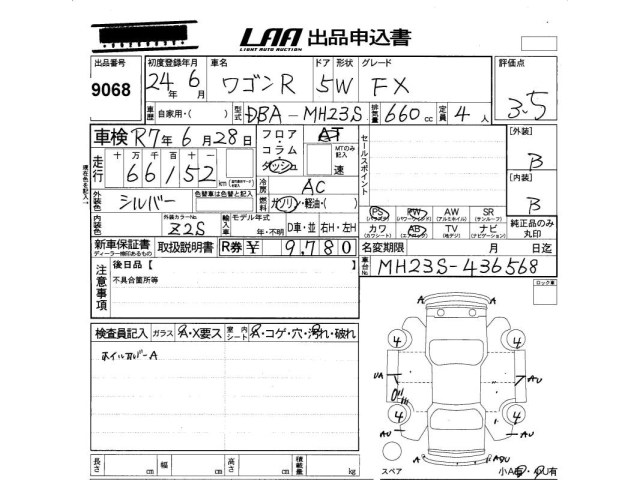 LAA 出品申込書
LIGHT AUTO AUCTION
出品番号 初度登録年月 車名 ドア 形状 グレード 評価点
9068 24年 6月 ワゴンR 5W FX 3.5
車歴 自家用・( ) 型式 DBA-MH23S 排気量 660cc 定員 4人
車検 R7年6月28日 フロア・コラム・ダッシュ AT MTのみ記入 速
セールスポイント
[外装] B
走行 十万 千百十 66152 km
現在色を記入
冷房 AC
[内装] B
外装色 シルバー 色替車は色替と記入 燃料 ガソリン・軽油・( )
PS (パワステ) PW (パワーウインド) AW (アルミホイル) SR (サンルーフ) 純正品のみ丸印
内装色 外装カラーNo. Z2S 輸入車 モデル年式 年・不明 D車・並 右H・左H
カワ (カワシート) AB (エアバック) TV (地デジ) ナビ (ナビゲーション)
新車保証書 ディーラー捺印あるもの 取扱説明書 R券 ¥ 9,780
名変期限 月 日迄
注意事項 後日品【 】
不具合箇所等
車台No. MH23S-436568
ロック車
検査員記入 ガラス A・X要ス 室内シート A・コゲ・穴・汚れ・破れ
ホイルカバーA
A A
4 4
UA AU
4 4
AU AU
A
スペア 小A有・小U有
長さ cm 幅 cm 高さ cm 積載量 kg